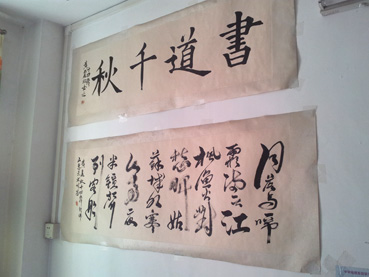 書道千秋
月落烏啼
霜滿天江
楓漁火對
愁眠姑
蘇城外寒
山寺夜
半鐘聲
到客船